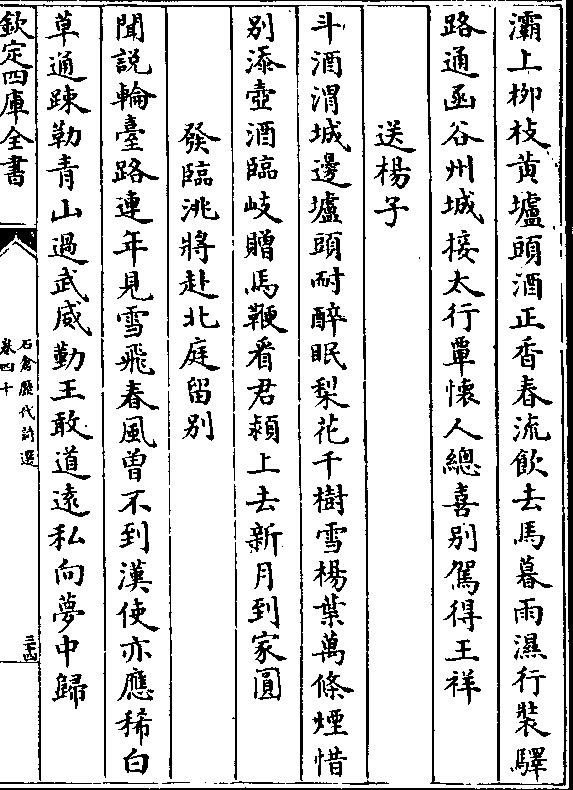 灞上柳枝黄壚頭酒正香春流飲去馬暮雨濕行裝驛
路通函谷州城接太行覃懷人總喜别駕得王祥
送楊子
斗酒渭城邊壚頭耐醉眠梨花千樹雪楊葉萬條煙惜
别添壺酒臨岐贈馬鞭看君潁上去新月到家圓
發臨洮將赴北庭留别
聞說輪臺路連年見雪飛春風曽不到漢使亦應稀白
草通踈勒青山過武威勤王敢道逺私向夢中歸
欽定四庫全書
石倉歷代詩選
卷四十
三十四